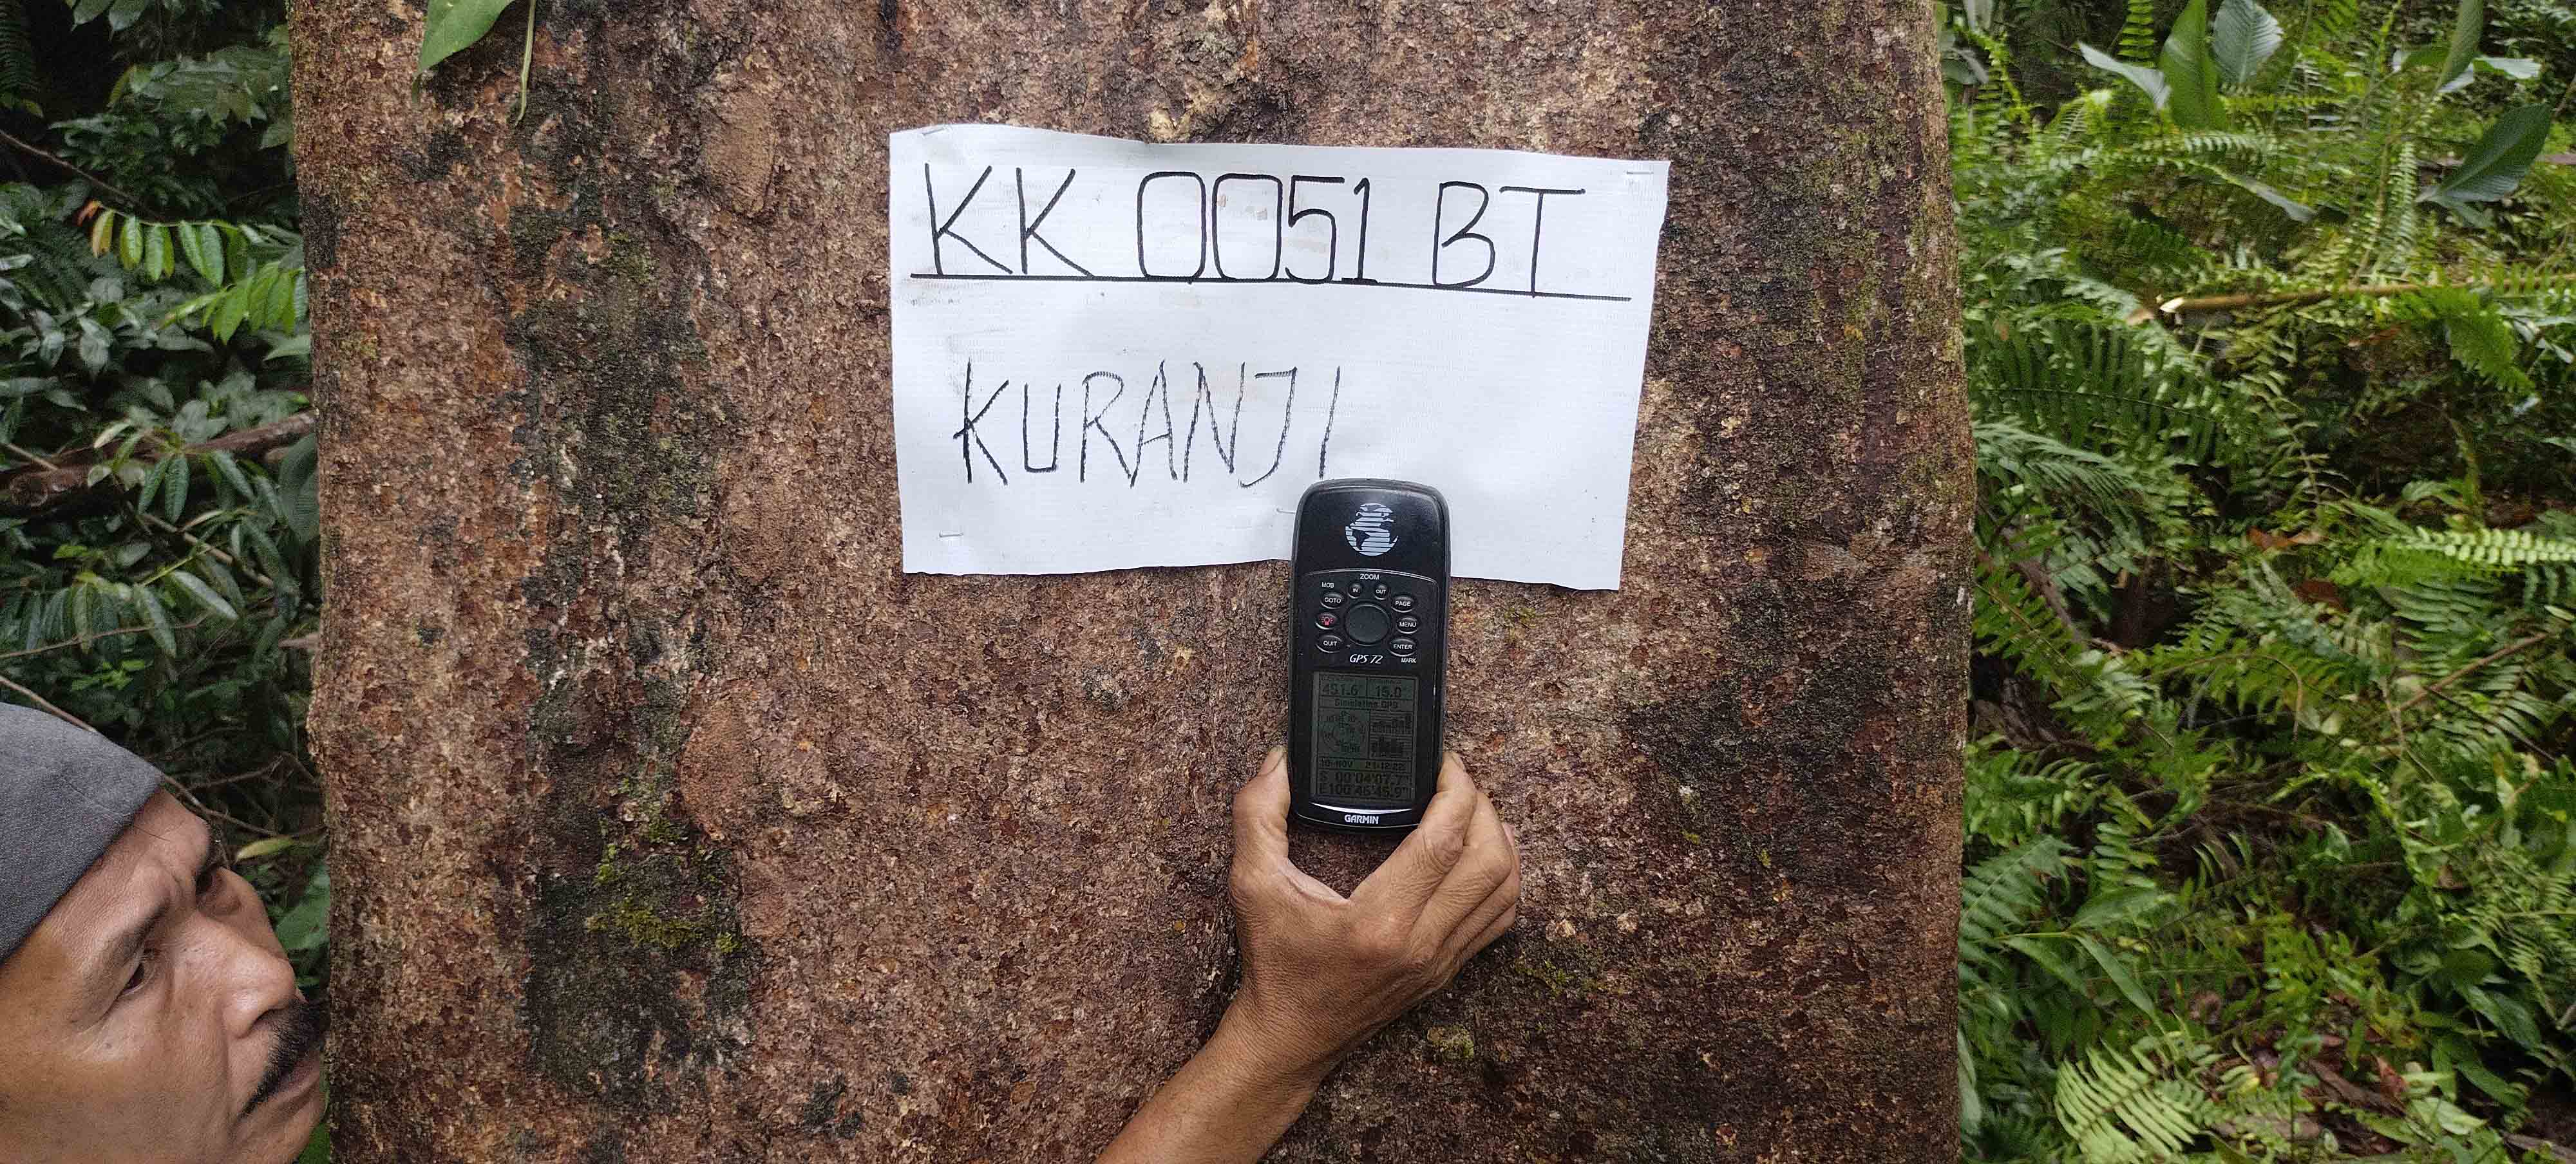 KK 0051 BT
KURANJI
ZOOM
MOB IN OUT
GOTO PAGE
MENU
QUIT ENTER
GPS 72 MARK
15.0'
Simulating GPS
S 00°04'07.7"
E100°46'45.9"
GARMIN